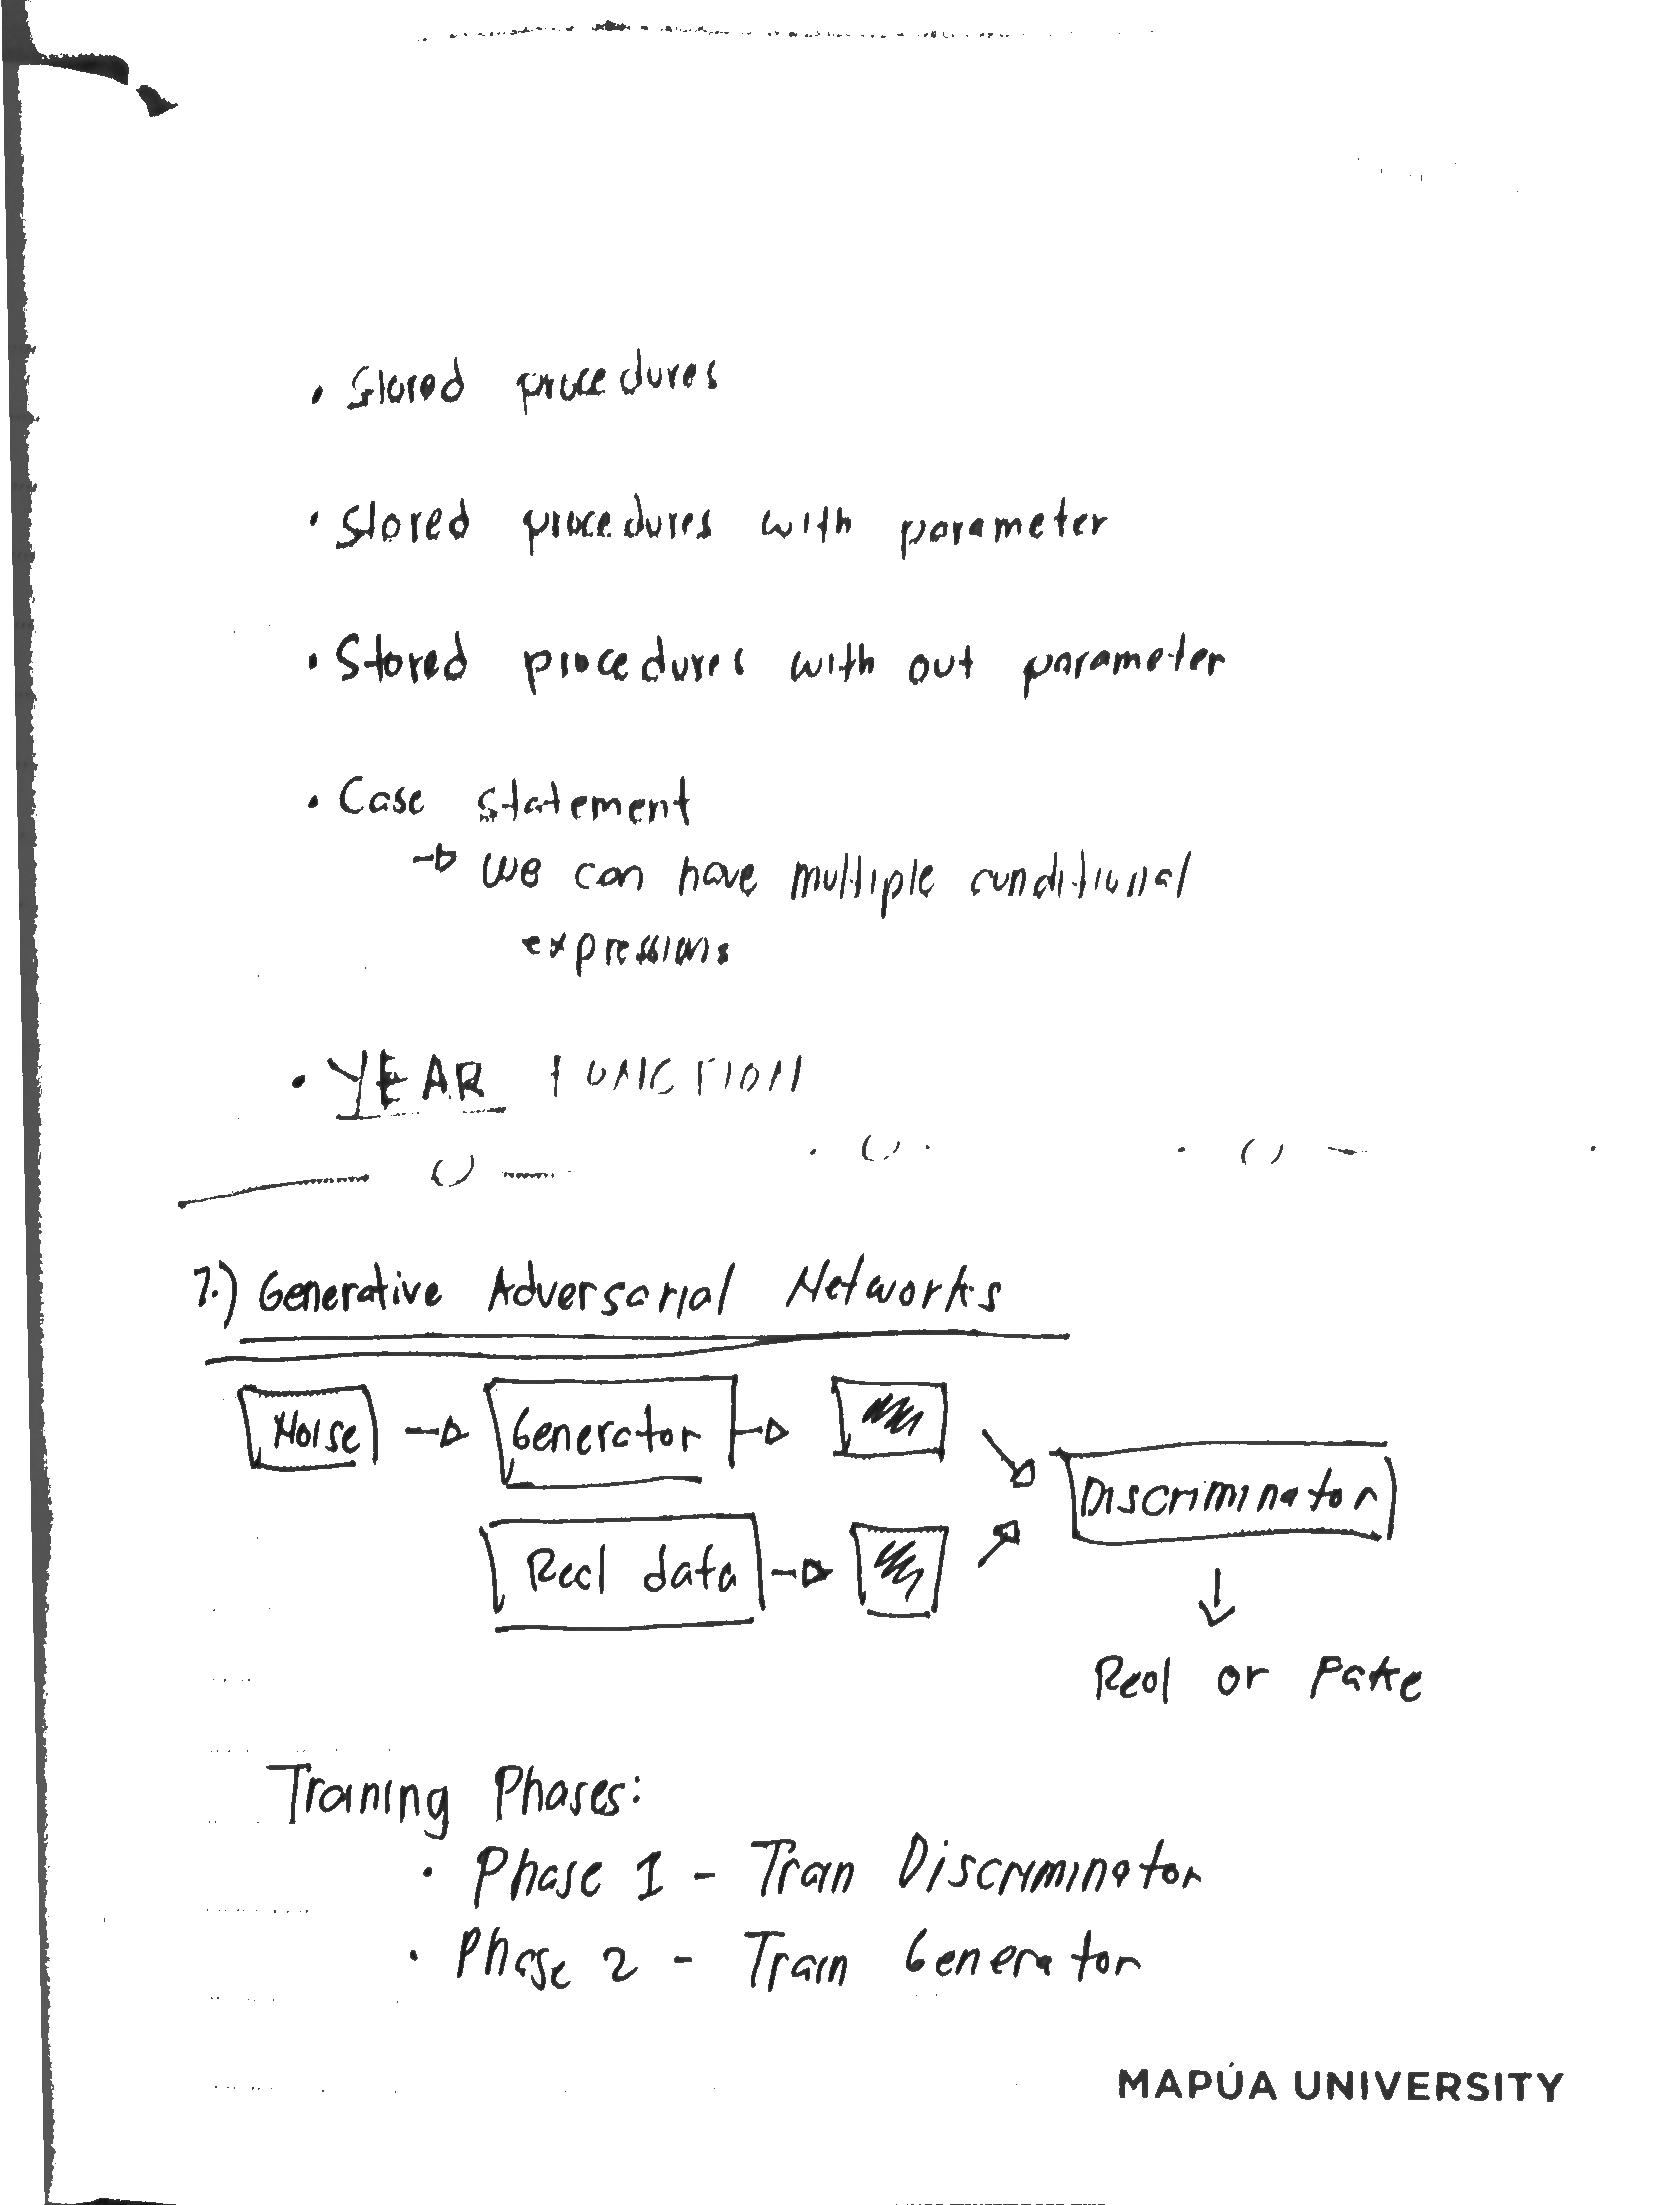 • Stored procedures
• Stored procedures with parameter
• Stored procedures with out parameter
• Case statement
→ we can have multiple conditional
expressions
• YEAR FUNCTION
7.) Generative Adversarial Networks
Noise → Generator →
Discriminator
Real data →
Real or Fake
Training Phases:
• Phase 1 - Train Discriminator
• Phase 2 - Train Generator
MAPÚA UNIVERSITY